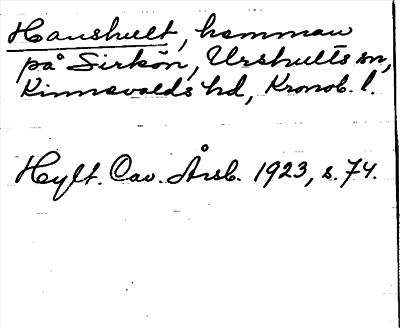 Haushult, hemman
på Sirkön, Urshults sn,
Kinnevalds hd, Kronob. l.
Hylt. Cav. Årsb. 1923, s. 74.